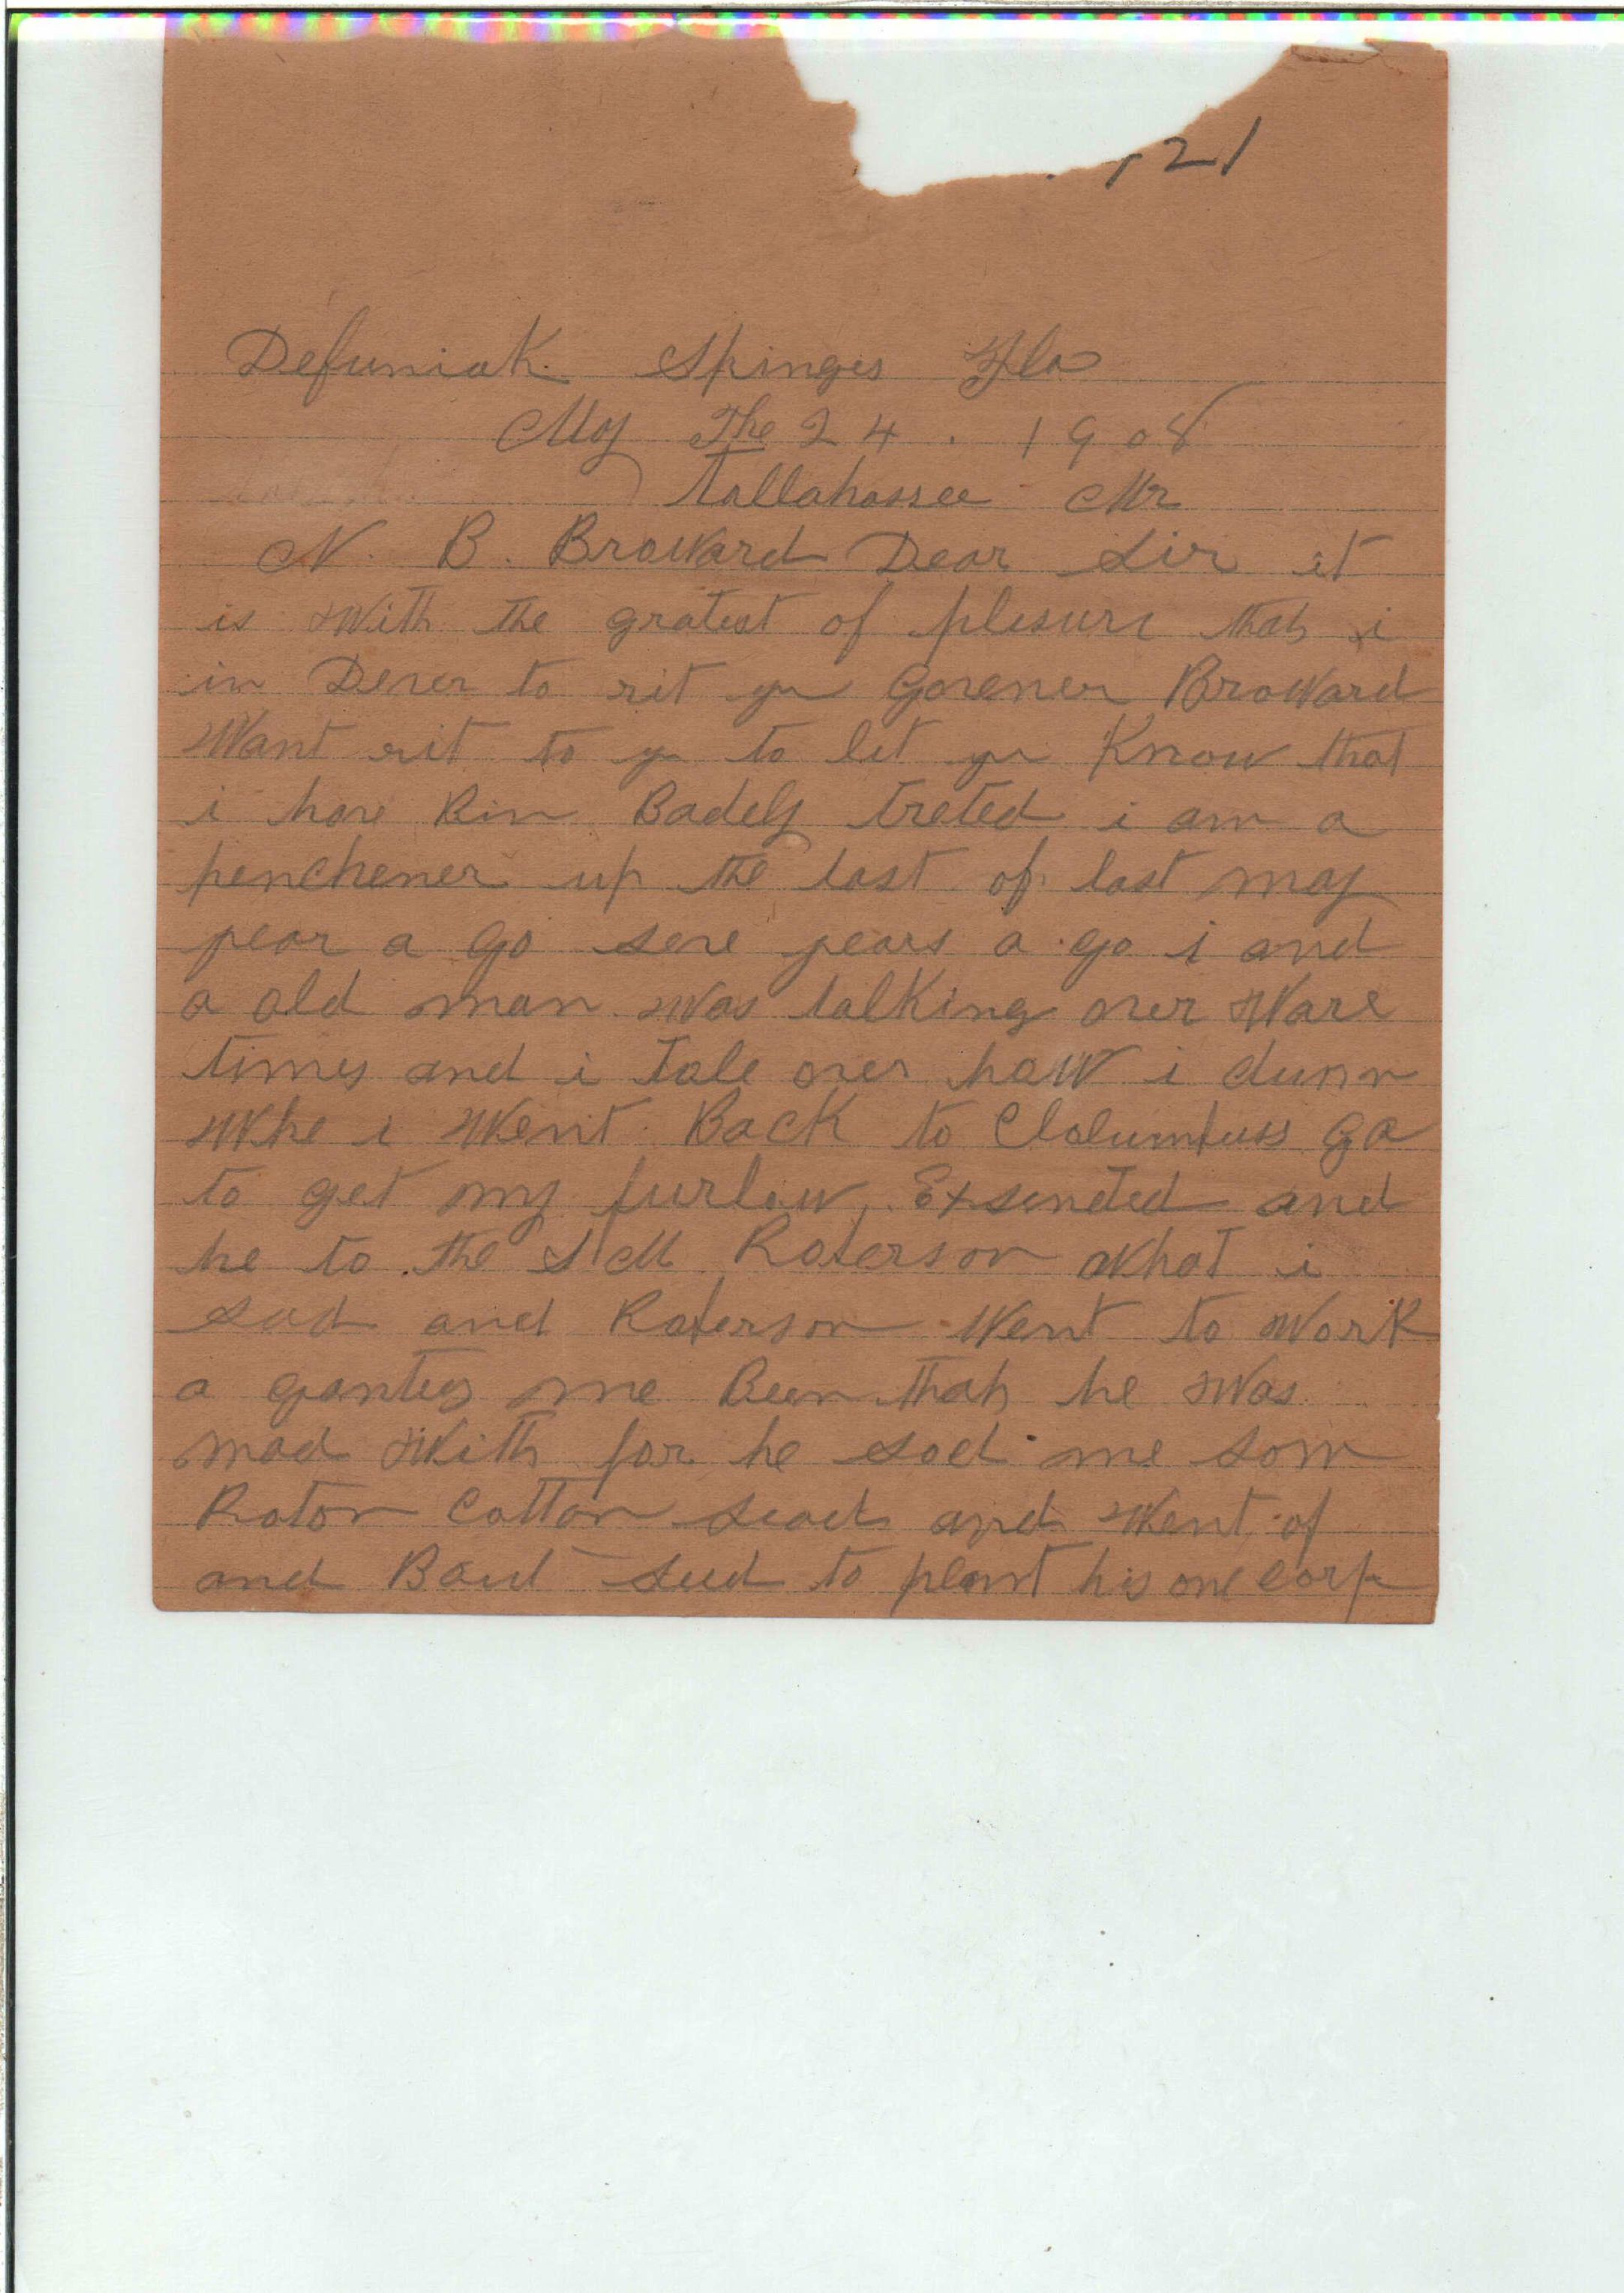 121
Defuniak Spinges Fla
May The 24. 1908
Tallahassee Mr
N. B. Broward Dear Sir it
is with the gratest of plesure that i
in Dever to rit yu Govener Broward
Want rit to yu to let yu Know that
i have Bin Badely treted i am a
penchener up the last of last may
year a go seve years a go i and
a old man was talking over Ware
times and i tale over haw i dunn
Whe i Went Back to Clolumbuss ga
to get my furlow, Exsended and
he to the S M Roberson What i
sad and Roberson Went to Work
a gantes me Been that he was
mad With for he sold me som
Roton Cotton sead and Went of
and Baut seed to plant his one corp